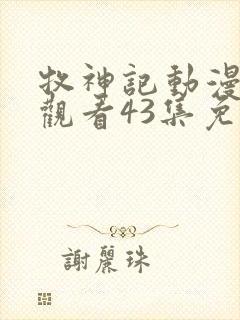 牧神記動漫
觀看43集免
謝麗珠